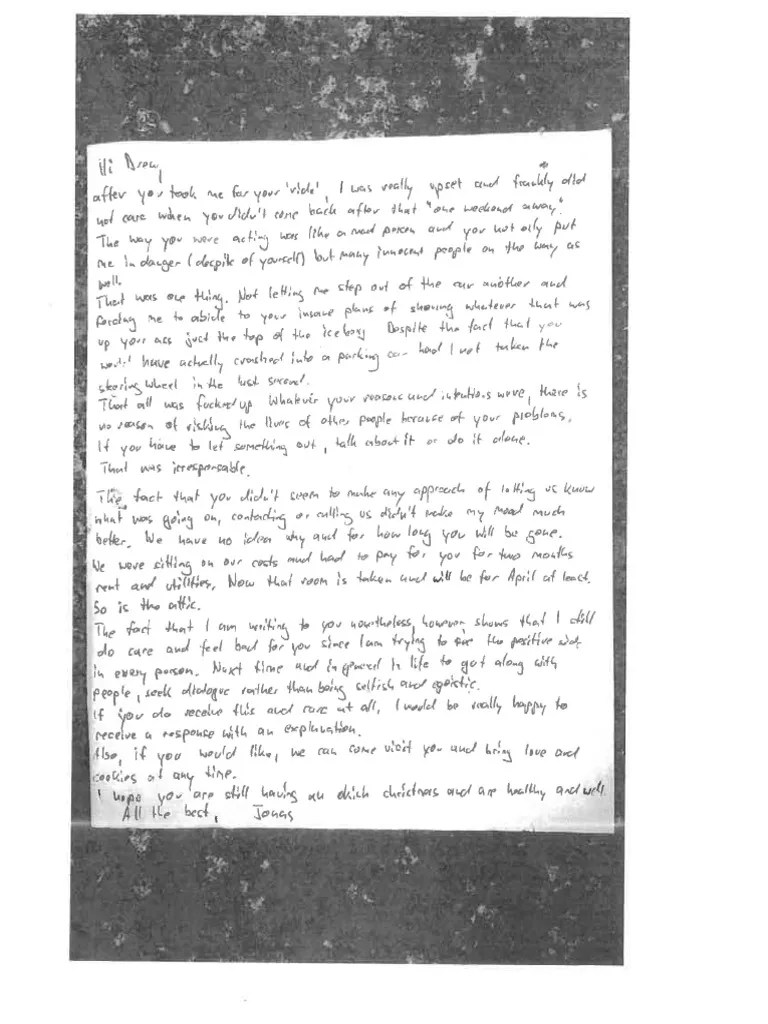 Hi Drew,
after you took me for your 'ride', I was really upset and frankly did
not care when you didn't come back after that "one weekend away".
The way you were acting was like a mad person and you not only put
me in danger (despite of yourself) but many innocent people on the way as
well.
That was one thing. Not letting me step out of the car another and
forcing me to abide to your insane plans of shoving whatever that was
up your ass just the top of the iceberg. Despite the fact that you
would have actually crashed into a parking car had I not taken the
steering wheel in the last second.
That all was fucked up. Whatever your reasons and intentions were, there is
no reason of risking the lives of other people because of your problems.
If you have to let something out, talk about it or do it alone.
That was irresponsable.
The fact that you didn't seem to make any approach of letting us know
what was going on, contacting or calling us didn't make my mood much
better. We have no idea why and for how long you will be gone.
We were sitting on our costs and had to pay for you for two months
rent and utilities. Now that room is taken and will be for April at least.
So is the attic.
The fact that I am writing to you nonetheless, however shows that I still
do care and feel bad for you since I am trying to see the positive side
in every person. Next time and in general in life to get along with
people, seek dialogue rather than being selfish and egoistic.
If you do receive this and care at all, I would be really happy to
receive a response with an explanation.
Also, if you would like, we can come visit you and bring love and
cookies at any time.
I hope you are still having an christmas and are healthy and well.
All the best, Jonas